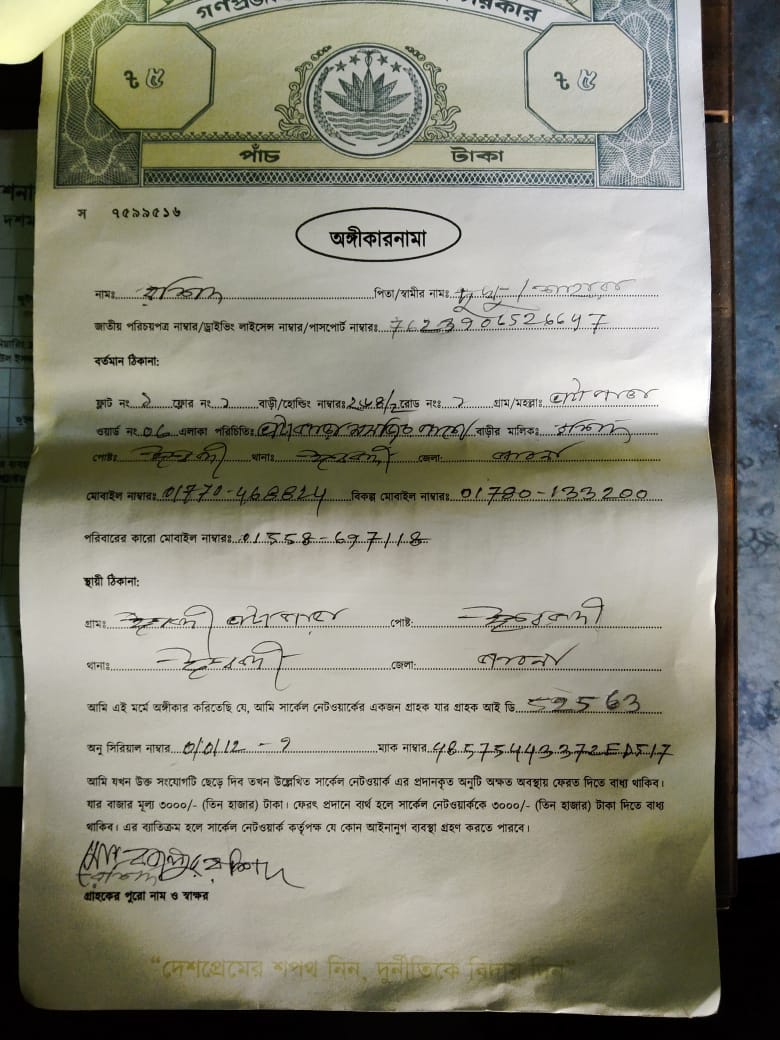 গণপ্রজা সরকার
৳ ৫ ৳ ৫
পাঁচ টাকা
স ৭৫৯৯৫১৬
অঙ্গীকারনামা
নামঃ রশিদ পিতা/স্বামীর নামঃ
জাতীয় পরিচয়পত্র নাম্বার/ড্রাইভিং লাইসেন্স নাম্বার/পাসপোর্ট নাম্বারঃ 7623906526647
বর্তমান ঠিকানা:
ফ্লাট নং ফ্লোর নং বাড়ী/হোল্ডিং নাম্বারঃ রোড নংঃ গ্রাম/মহল্লাঃ
ওয়ার্ড নং 06 এলাকা পরিচিতিঃ বাড়ীর মালিকঃ রশিদ
পোষ্টঃ ঈশ্বরদী থানাঃ ঈশ্বরদী জেলা: পাবনা
মোবাইল নাম্বারঃ 01770-468824 বিকল্প মোবাইল নাম্বারঃ 01780-133200
পরিবারের কারো মোবাইল নাম্বারঃ 01558-697118
স্থায়ী ঠিকানা:
গ্রামঃ পোষ্ট: ঈশ্বরদী
থানাঃ ঈশ্বরদী জেলা: পাবনা
আমি এই মর্মে অঙ্গীকার করিতেছি যে, আমি সার্কেল নেটওয়ার্কের একজন গ্রাহক যার গ্রাহক আই ডি 52563
অনু সিরিয়াল নাম্বার 0/0/12 - 9 ম্যাক নাম্বার 48575443372ED517
আমি যখন উক্ত সংযোগটি ছেড়ে দিব তখন উল্লেখিত সার্কেল নেটওয়ার্ক এর প্রদানকৃত অনুটি অক্ষত অবস্থায় ফেরত দিতে বাধ্য থাকিব।
যার বাজার মূল্য ৩০০০/- (তিন হাজার) টাকা। ফেরৎ প্রদানে ব্যর্থ হলে সার্কেল নেটওয়ার্ককে ৩০০০/- (তিন হাজার) টাকা দিতে বাধ্য
থাকিব। এর ব্যতিক্রম হলে সার্কেল নেটওয়ার্ক কর্তৃপক্ষ যে কোন আইনানুগ ব্যবস্থা গ্রহণ করতে পারবে।
গ্রাহকের পুরো নাম ও স্বাক্ষর
“দেশপ্রেমের শপথ নিন, দুর্নীতিকে বিদায় দিন”